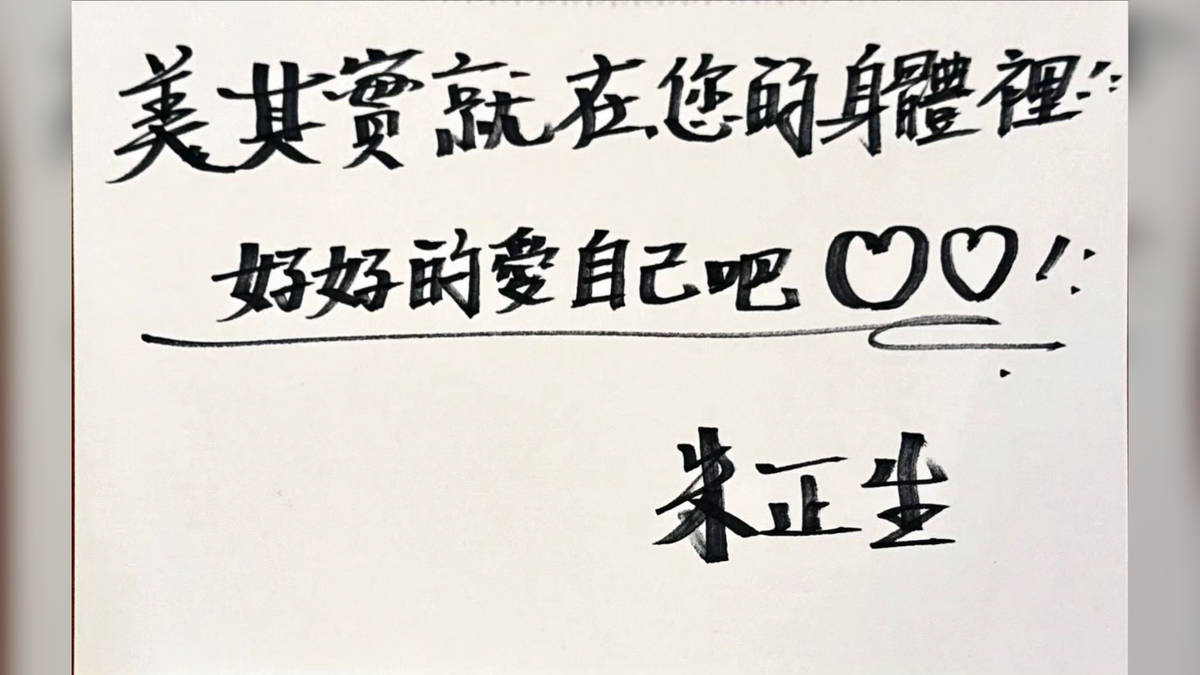 美其實就在您的身體裡!!
好好的愛自己吧♡♡!!
朱正生